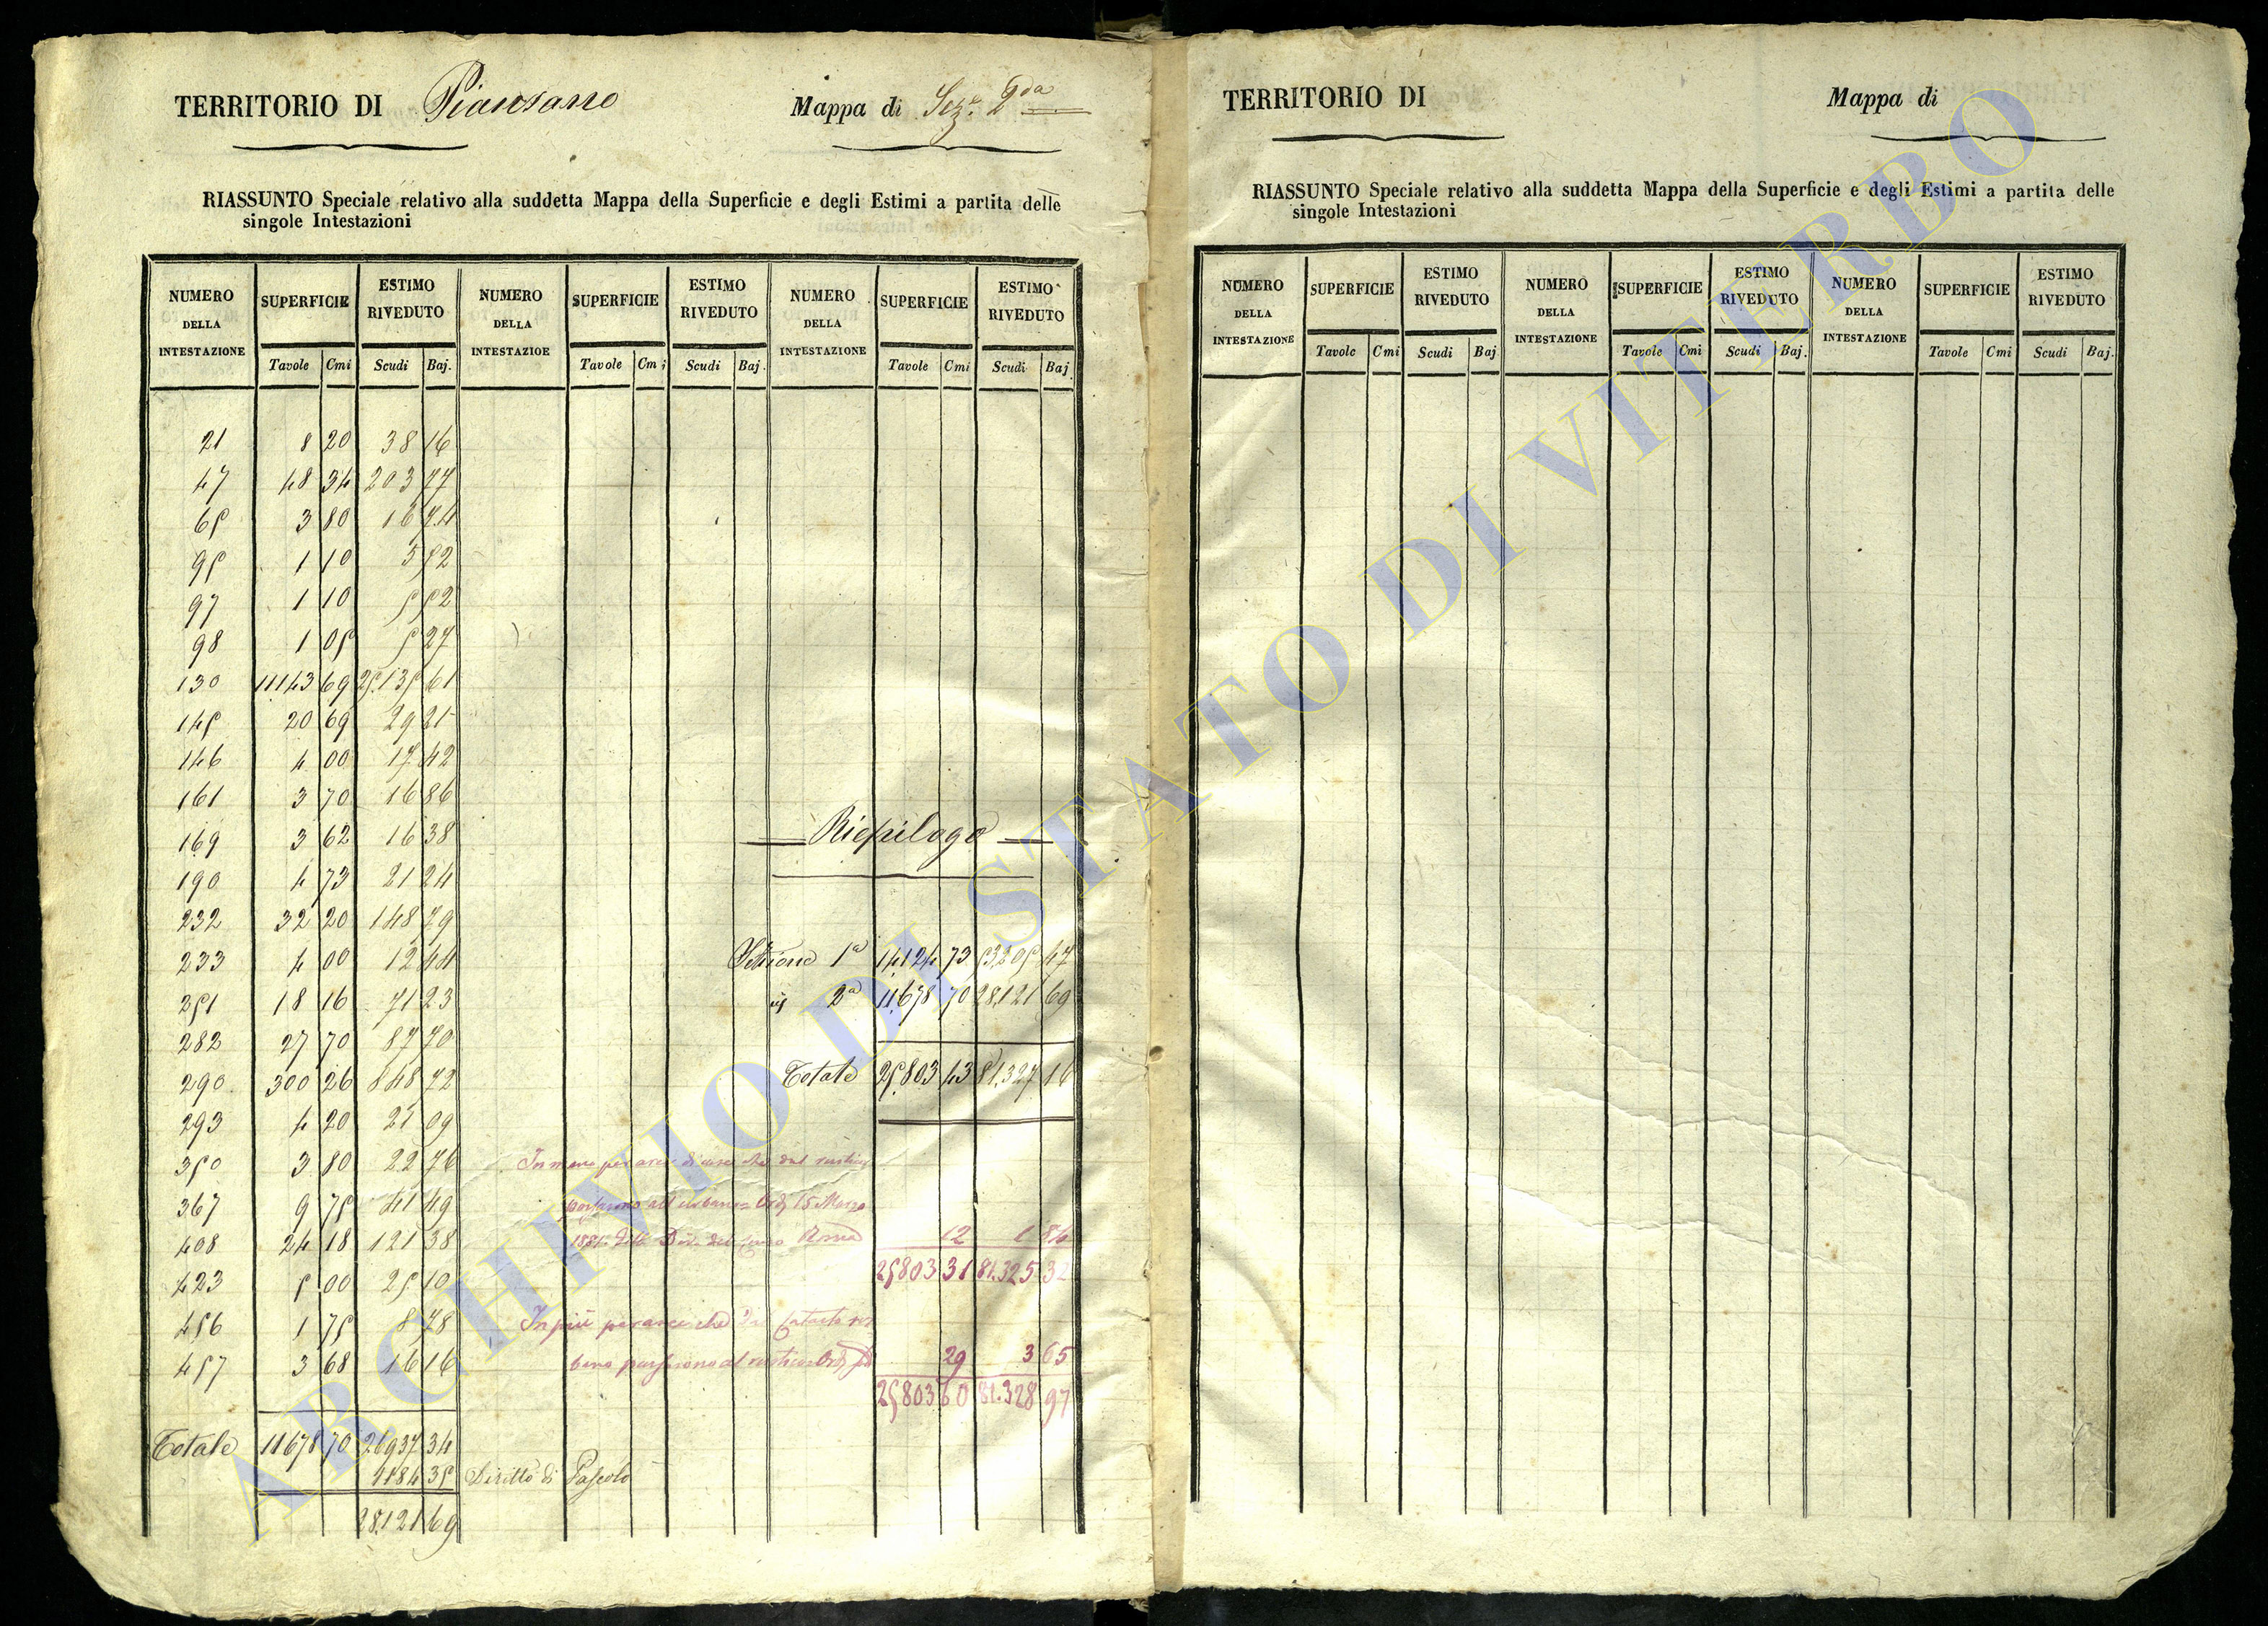 TERRITORIO DI Piansano Mappa di Sez.e 2da
RIASSUNTO Speciale relativo alla suddetta Mappa della Superficie e degli Estimi a partita delle
singole Intestazioni
NUMERO DELLA INTESTAZIONE SUPERFICIE ESTIMO RIVEDUTO NUMERO DELLA INTESTAZIOE SUPERFICIE ESTIMO RIVEDUTO NUMERO DELLA INTESTAZIONE SUPERFICIE ESTIMO RIVEDUTO
Tavole Cmi Scudi Baj. Tavole Cmi Scudi Baj. Tavole Cmi Scudi Baj.
21 8 20 38 16
47 48 34 203 77
65 3 80 16 74
95 1 10 5 52
97 1 10 5 52
98 1 05 5 27
130 11143 69 25.135 61
145 20 69 29 21
146 4 00 17 42
161 3 70 16 86
169 3 62 16 38
190 4 73 21 24
232 32 20 148 79
233 4 00 12 44
251 18 16 71 23
282 27 70 87 70
290 300 26 848 72
293 4 20 21 09
350 3 80 22 76
367 9 75 41 49
408 24 18 121 38
423 5 00 25 10
456 1 75 8 78
457 3 68 16 16
Totale 11678 70 26937 34
1184 35 Diritto di Pascolo
28.121 69
Riepilogo
Sezione 1a 14,124 73 53,205 47
id 2a 11,678 70 28,121 69
Totale 25,803 43 81,327 16
In meno per aree di case che dal rustico
passarono all'urbano Ord. 15 Marzo
1881 della Dir. del Censo Roma 12 1 84
25803 31 81.325 32
In più per aree che dal Catasto ur
bano passarono al rustico Ord. 29 3 65
25803 60 81.328 97
TERRITORIO DI Mappa di
RIASSUNTO Speciale relativo alla suddetta Mappa della Superficie e degli Estimi a partita delle
singole Intestazioni
NUMERO DELLA INTESTAZIONE SUPERFICIE ESTIMO RIVEDUTO NUMERO DELLA INTESTAZIONE SUPERFICIE ESTIMO RIVEDUTO NUMERO DELLA INTESTAZIONE SUPERFICIE ESTIMO RIVEDUTO
Tavole Cmi Scudi Baj Tavole Cmi Scudi Baj. Tavole Cmi Scudi Baj.
ARCHIVIO DI STATO DI VITERBO